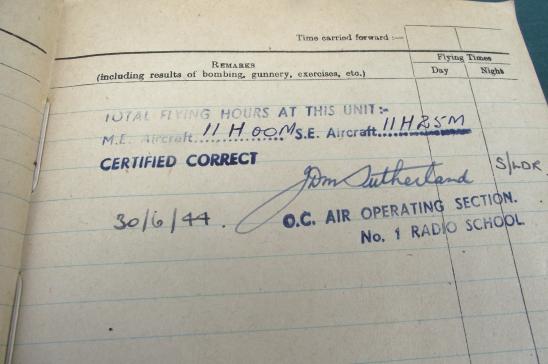 Time carried forward :—
Remarks
(including results of bombing, gunnery, exercises, etc.)
Flying Times
Day Night
TOTAL FLYING HOURS AT THIS UNIT:-
M.E. Aircraft 11 H 00M S.E. Aircraft 11 H 25M
CERTIFIED CORRECT
JDM Sutherland S/LDR
30/6/44.
O.C. AIR OPERATING SECTION.
No. 1 RADIO SCHOOL